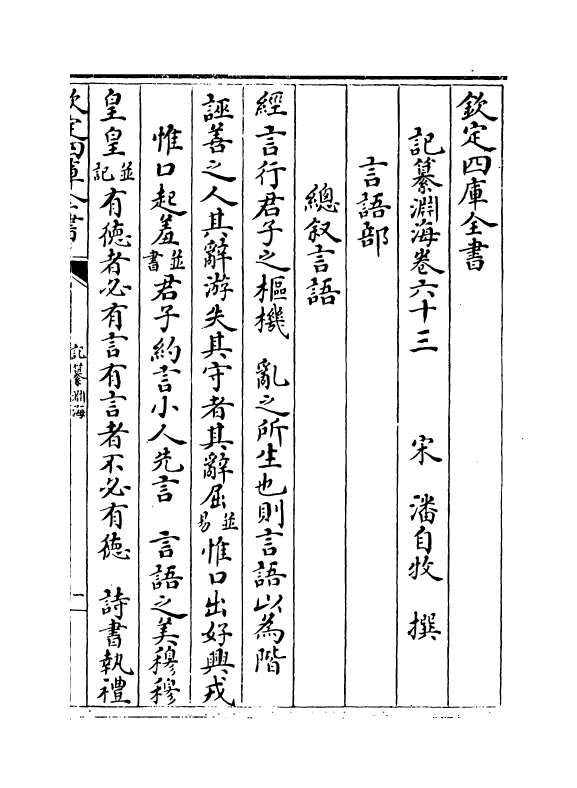 欽定四庫全書
記纂淵海卷六十三　宋　潘自牧　撰
言語部
總叙言語
經言行君子之樞機　亂之所生也則言語以為階
誣善之人其辭游失其守者其辭屈並易惟口出好興戎
惟口起羞並書君子約言小人先言　言語之美穆穆
皇皇並記有德者必有言有言者不必有德　詩書執禮
欽定四庫全書
記纂淵海
一